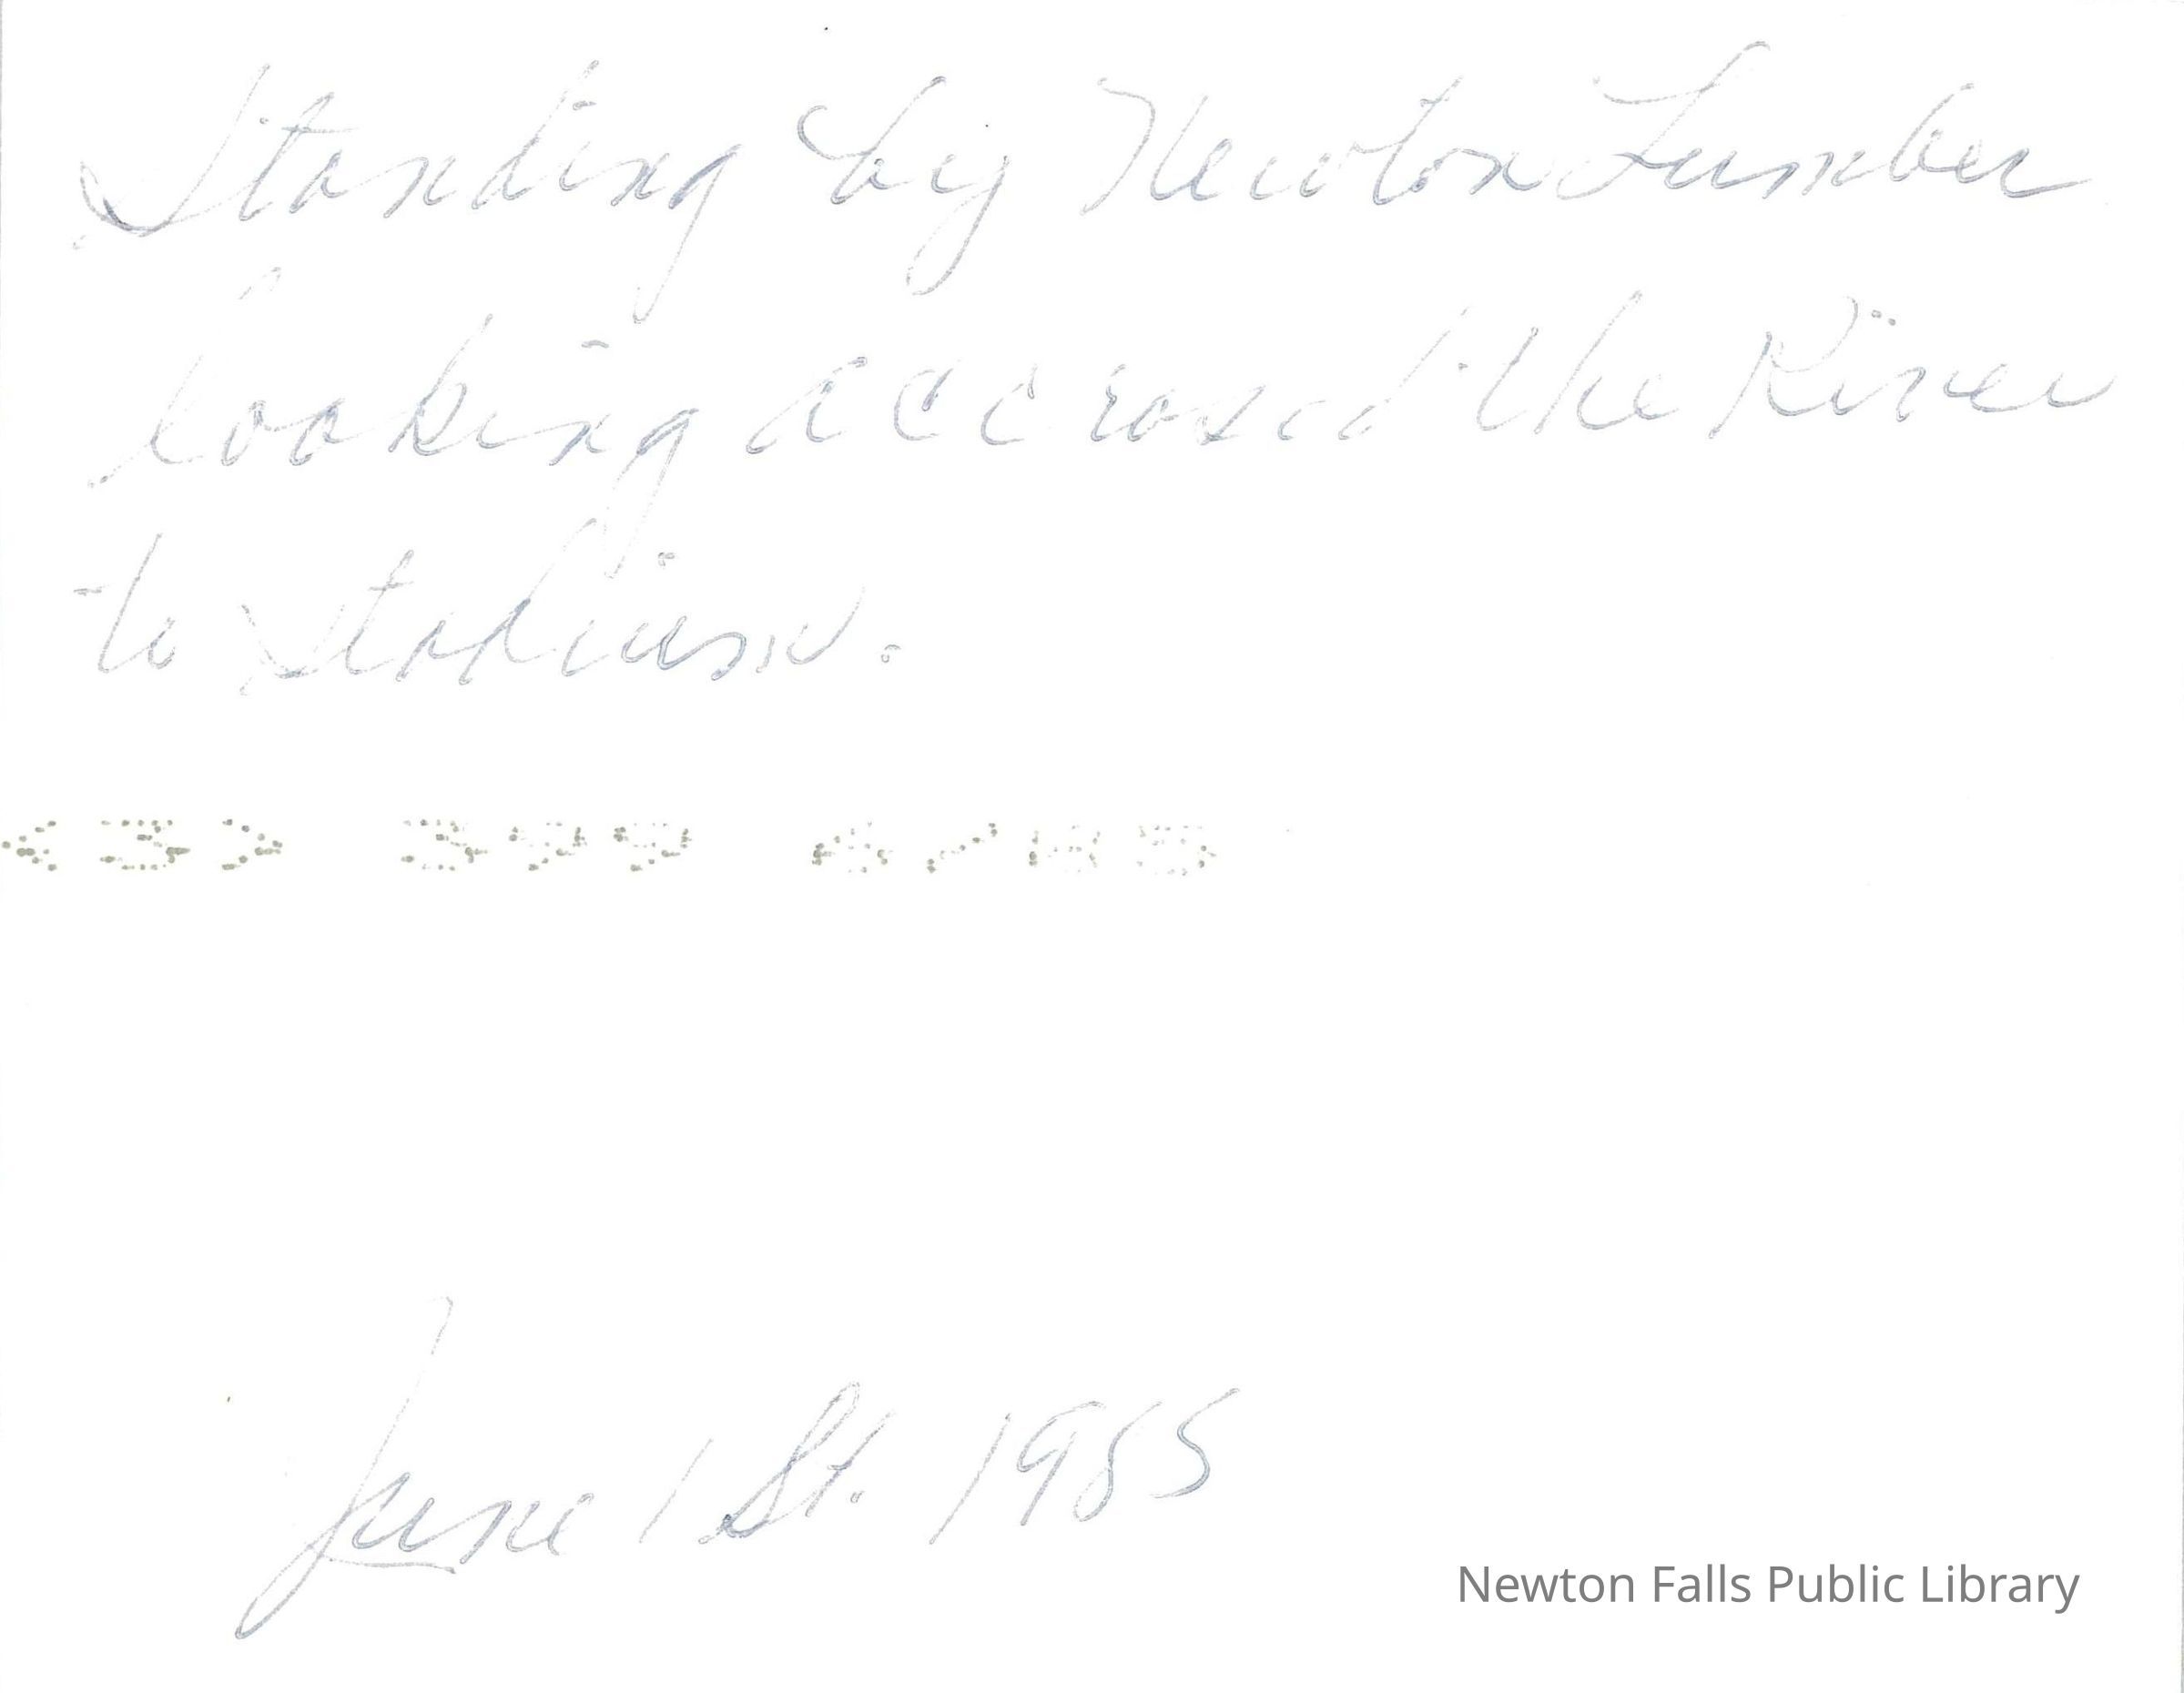 Standing by Newton Lumber
looking accrossed the River
to Stadium.
<3> 399 6/85
June 1 St. 1985
Newton Falls Public Library